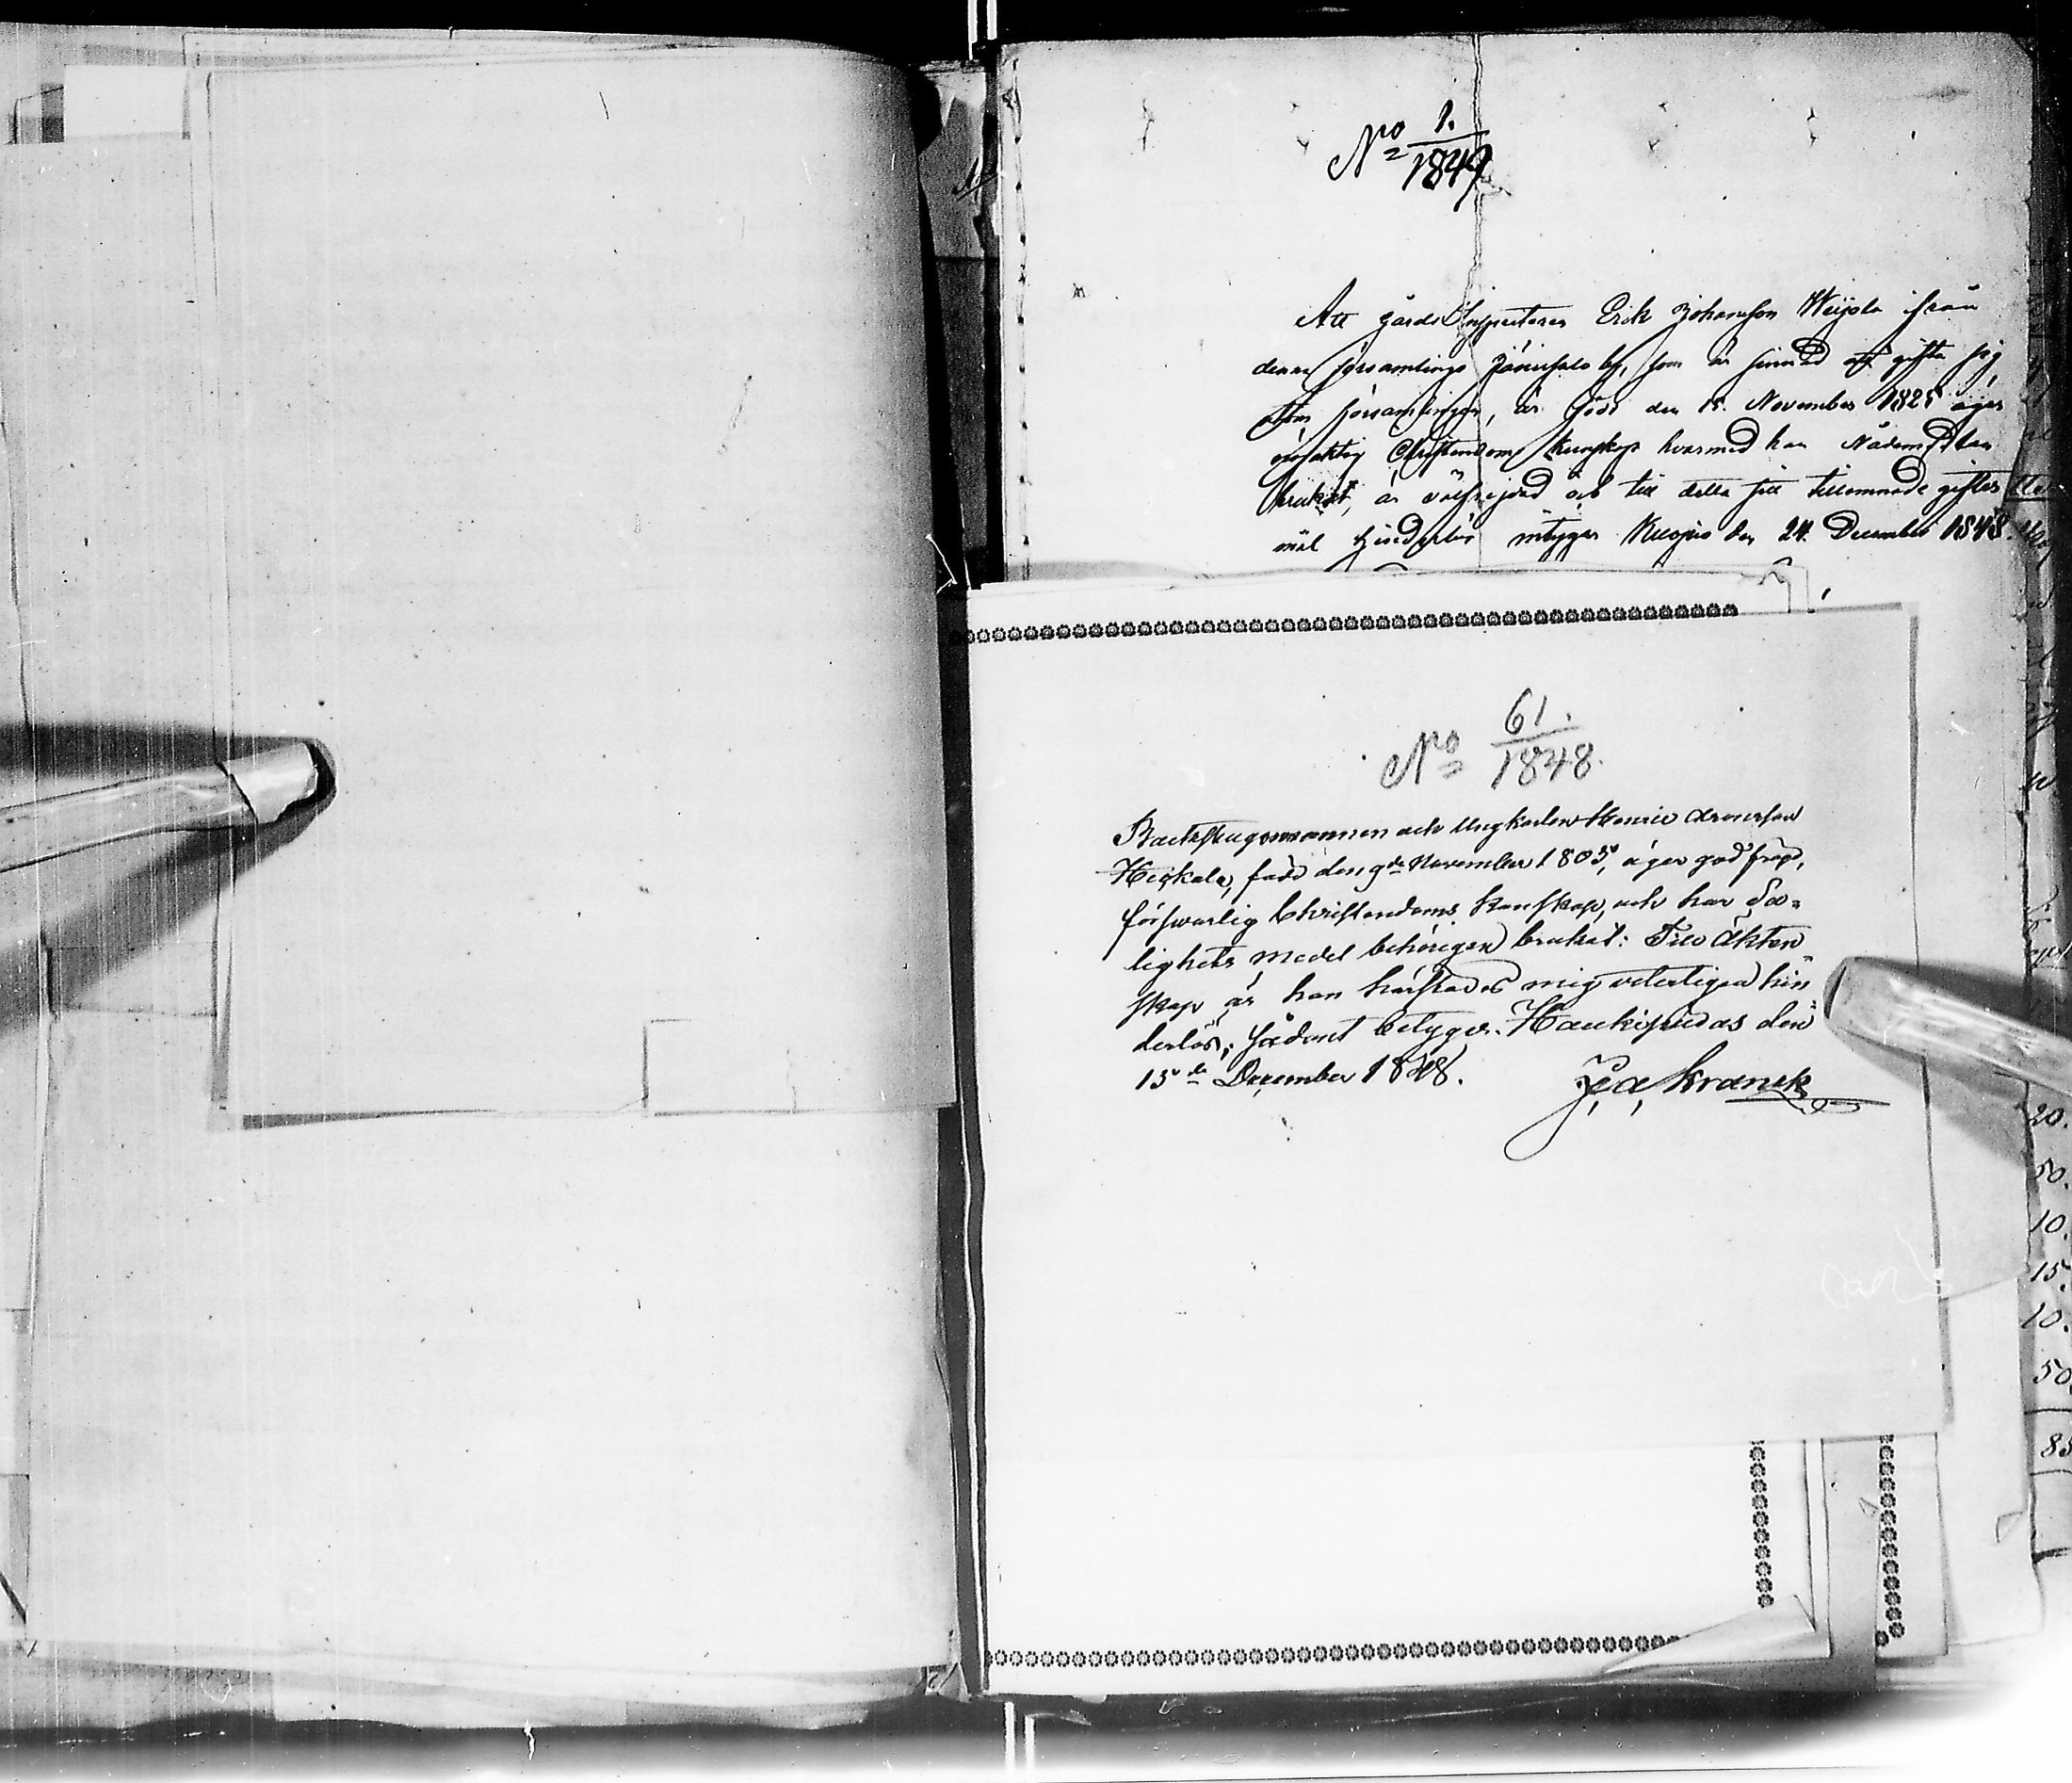 No 1.
1849
Att gårds Inspectoren Erik Johansson Weijola ifrån
denna församlings Jänissalo by, som är sinnad att gifta sig
utom församlingen, är född den 15. November 1825 äger
Christendoms kunskap hvarmed han Nådemedlen
brukat, är välfrejdad och till detta sitt tillämnade gifter
mål hinderlös intygar Kuopio den 24. December 1848.
No 61.
1848.
Backstugomannen och Ungkarlen Henric Aronsson
Heikala, född den 9de November 1805, äger god frägd,
försvarlig Christendoms kunskap, och har Sa-
lighets medel behörigen brukat: Till Äkten
skap är han härstädes mig veterligen hin
derlös; sådant betygar. Haukipudas den
15de December 1848.
J. A. Kranck
20.
50.
10.
15.
10.
50
85